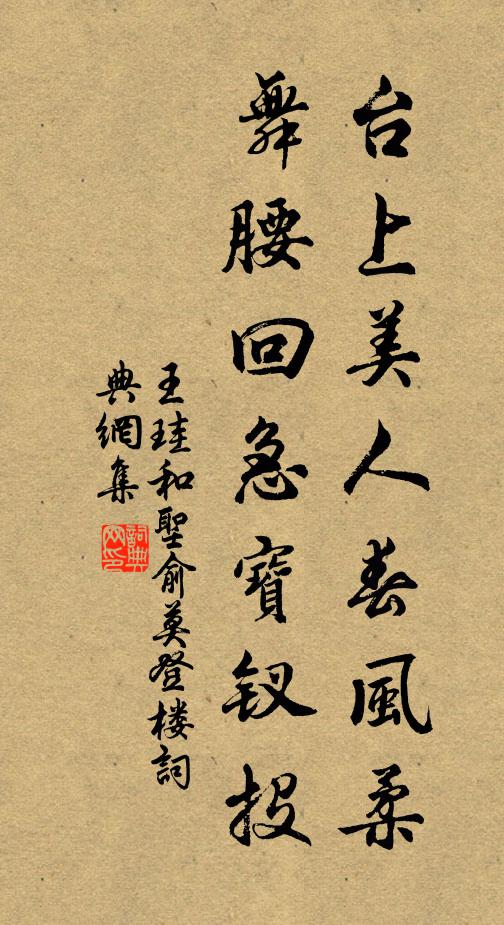 台上美人春風柔
舞腰回急寶釵投
王珪和聖俞莫登楼詞
典網集
詞典網印